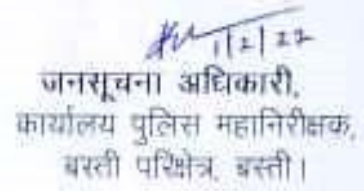 1/2/22
जनसूचना अधिकारी,
कार्यालय पुलिस महानिरीक्षक,
बस्ती परिक्षेत्र, बस्ती।